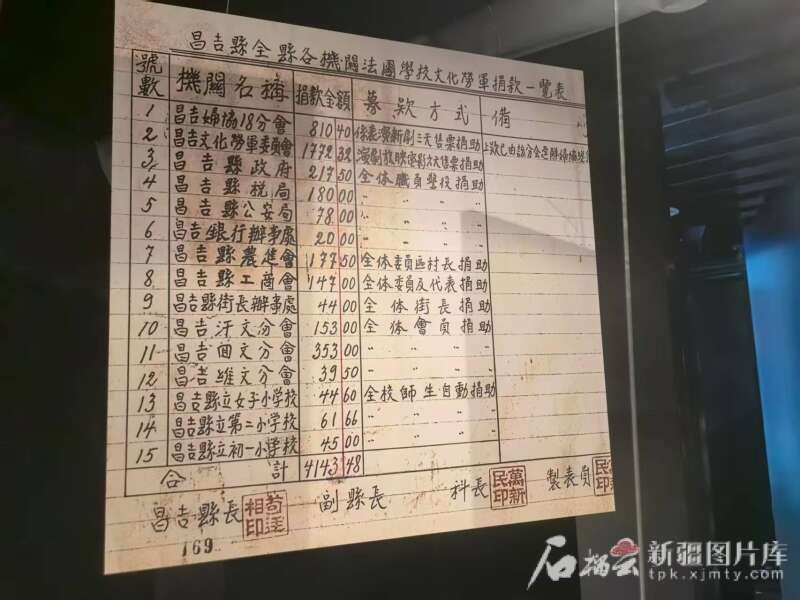 昌吉縣全縣各機關法團學校文化勞軍捐款一覽表
號數 機關名稱 捐款金額 募款方式 備
1 昌吉婦協18分會 810 40 係表演新劇三天售票捐助
2 昌吉文化勞軍委員會 1772 32 演劇放映電影六天售票捐助
3 昌吉縣政府 217 50 全体職員學校捐助
4 昌吉縣稅局 180 00 〃 〃 〃
5 昌吉縣公安局 78 00 〃 〃 〃
6 昌吉銀行辦事處 20 00 〃 〃 〃
7 昌吉縣農進會 177 50 全体委員區村長捐助
8 昌吉縣工商會 147 00 全体委員及代表捐助
9 昌吉縣街長辦事處 44 00 全体街長捐助
10 昌吉汗文分會 153 00 全体會員捐助
11 昌吉回文分會 353 00 〃 〃 〃
12 昌吉維文分會 39 50 〃 〃 〃
13 昌吉縣立女子小學校 44 60 全校師生自動捐助
14 昌吉縣立第二小學校 61 66 〃 〃 〃
15 昌吉縣立初一小學校 45 00 〃 〃 〃
合計 4143 48
昌吉縣長 相印 副縣長 科長 萬新民印 製表員
169
石榴云 新疆图片库
tpk.xjmty.com